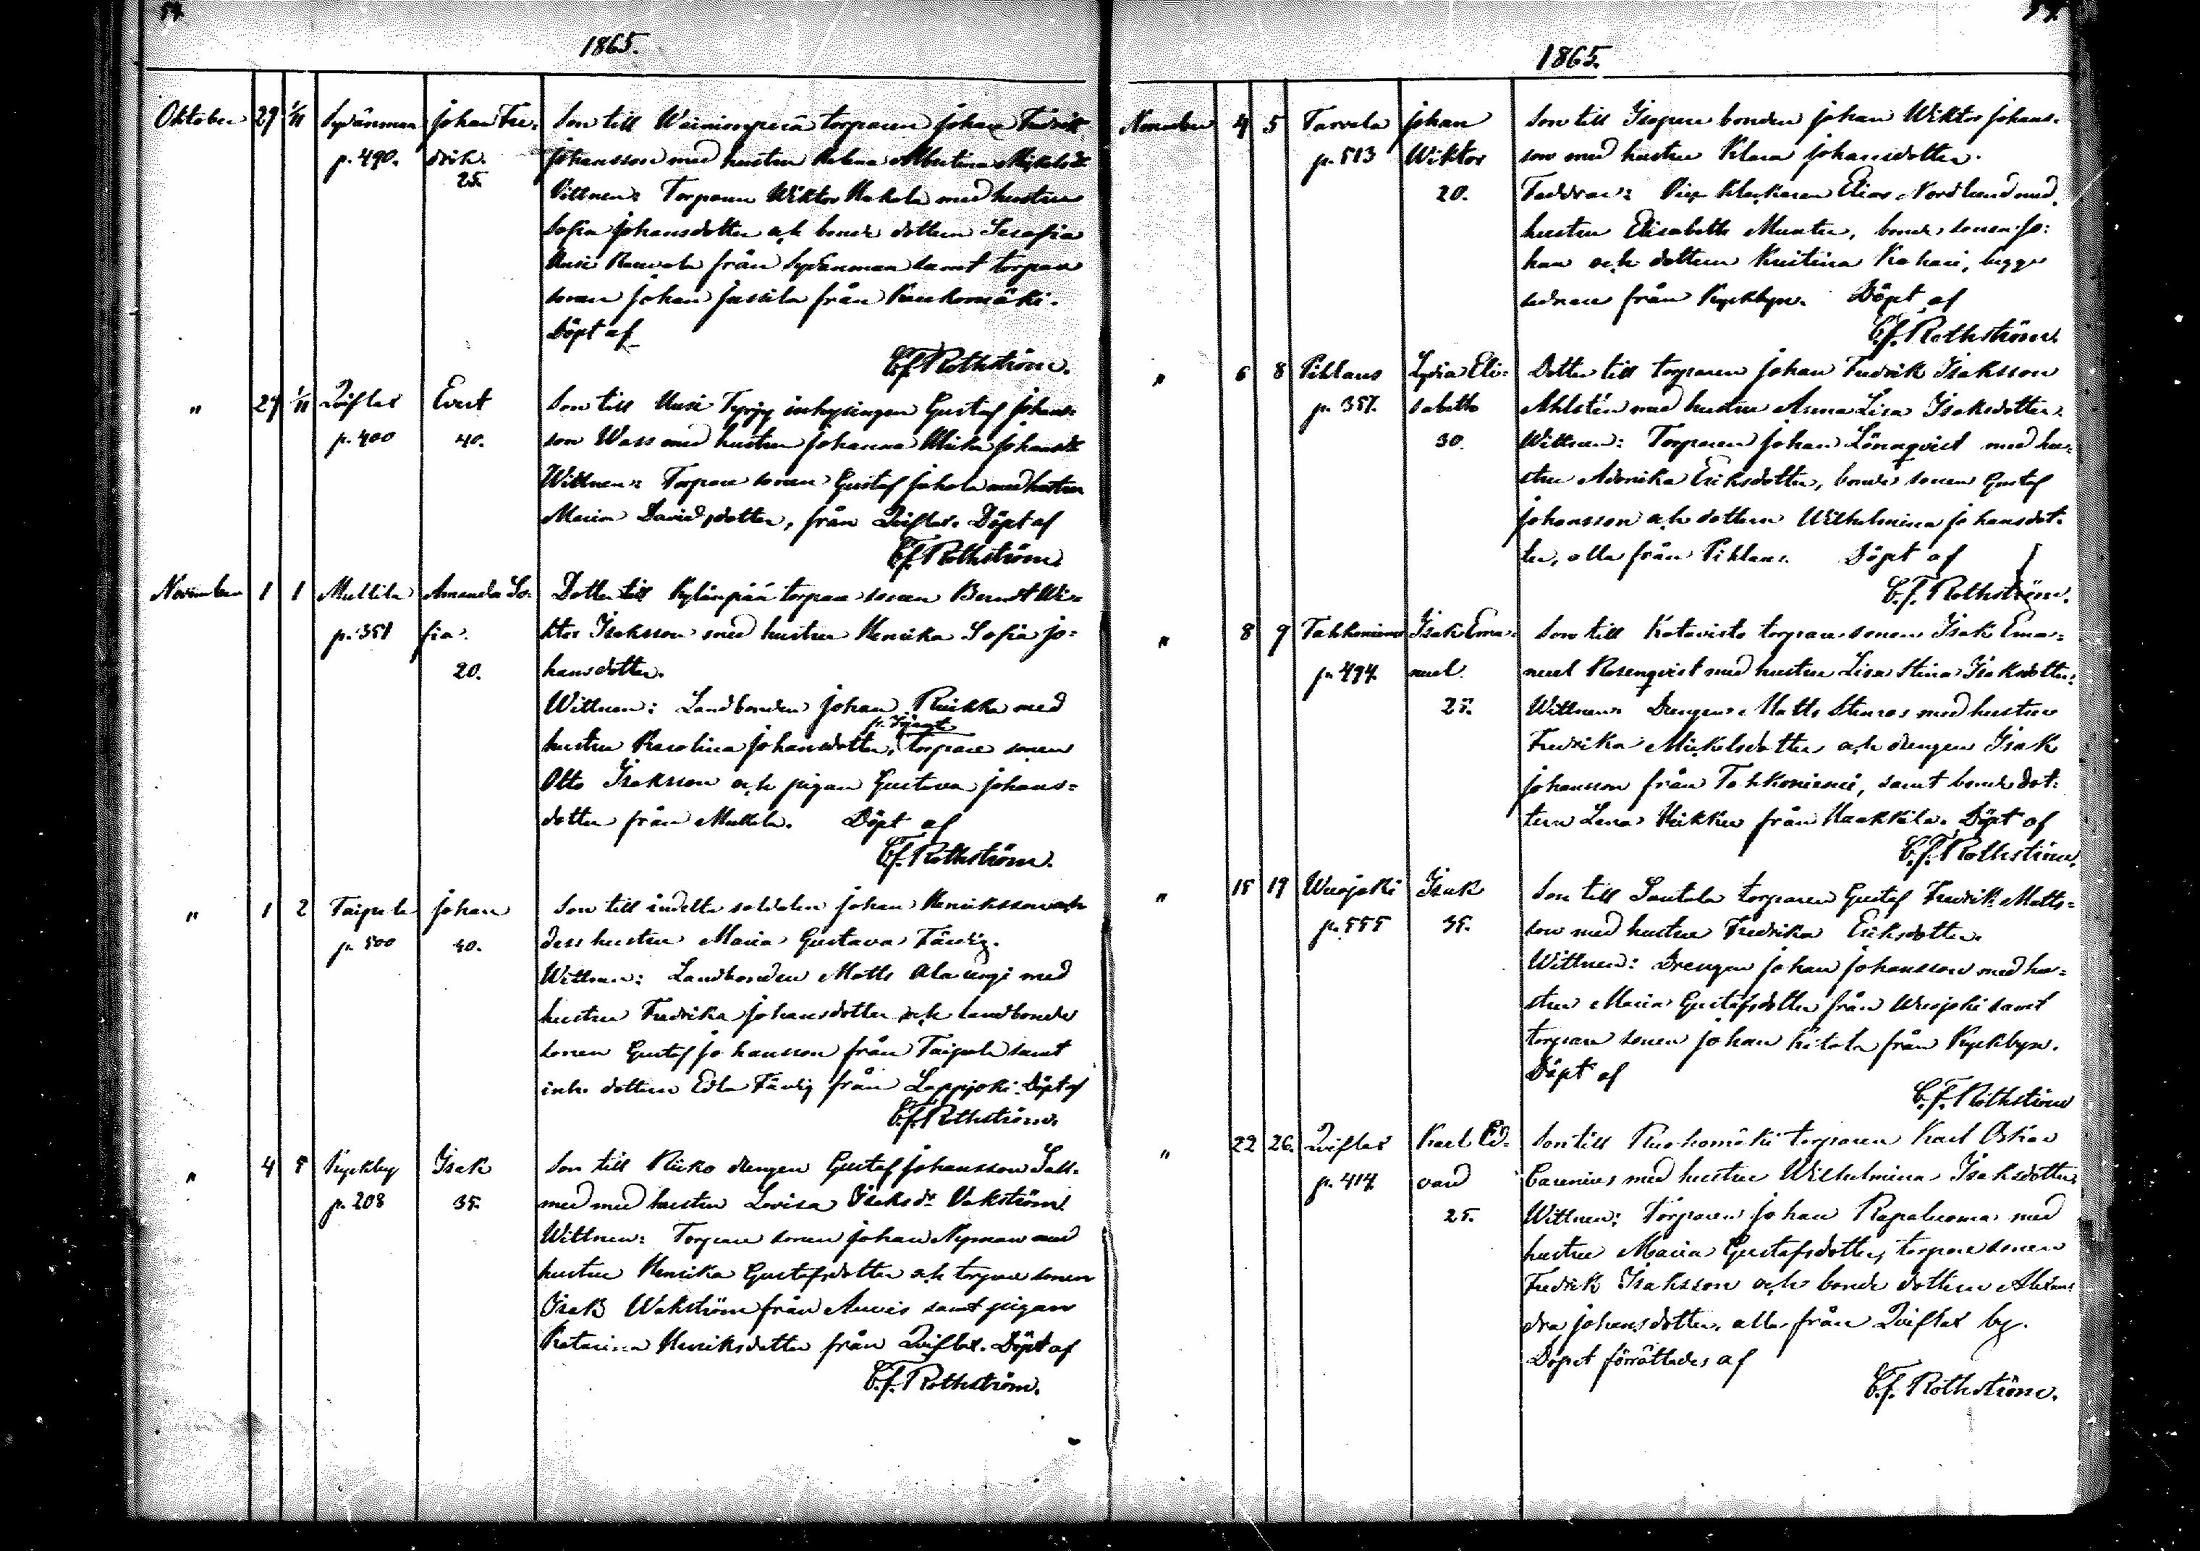 54.
1865.
Oktober 29 1/11 Sydänmaa Johan Fre-
p. 490. drik.
25.
Son till Wainionperä torparen Johan Fredrik
Johansson med hustru Helena Albertina Mickelsdr
Vittnen: Torparen Wiktor Hakala med hustru
Sofia Johansdotter och bonde dottern Serafia
Uusi Rauvola från Sydänmaa samt torpare
sonen Johan Jussila från Kaukomäki.
Döpt af
C.f. Rothström.
" 29 1/11 Qviflax Evert
p. 400 40.
Son till Uusi Tyrjy inhysingen Gustaf Johans-
son Wass med hustru Johanna Ulrika Johansdr
Wittnen: Torpare sonen Gustaf Jahala med hustru
Maria Davidsdotter, från Qviflax. Döpt af
C.f. Rothström.
November 1 1 Mullila Amanda So-
p. 351 fia.
20.
Dotter till Kylänpää torpare sonen Berndt Wi-
ktor Isaksson med hustru Henrika Sofia Jo-
hansdotter.
Wittnen: Landbonden Johan Riikka med
hustru Karolina Johansdotter, torpare sonen
Otto Isaksson och pigan Gustava Johans-
dotter från Mullila. Döpt af
C.f. Rothström.
" 1 2 Taipale Johan
p. 500 40.
Son till indelta soldaten Johan Henriksson och
dess hustru Maria Gustava Färdig.
Wittnen: Landbonden Matts Alaurgi med
hustru Fredrika Johansdotter och landbonde
sonen Gustaf Johansson från Taipale samt
inh. dottern Edla Färdig från Lappjoki. Döpt af
C.f. Rothström.
" 4 5 Kyrkby Isak
p. 208 35.
Son till Riiko drengen Gustaf Johansson Sall-
med med hustru Lovisa Isaksdr Vakström
Wittnen: Torpare sonen Johan Nyman med
hustru Henrika Gustafsdotter och torpare sonen
Isak Wakström från Auvis samt pigan
Katarina Henriksdotter från Qviflax. Döpt af
C.f. Rothström.
1865.
November 4 5 Tarvola Johan
p. 513 Wiktor
20.
Son till Isopere bonden Johan Wiktor Johans-
son med hustru Klara Johansdotter.
Faddrar: Klockaren Elias Nordlund med
hustru Elisabeth Munter, bonde sonen Jo-
han och dottern Kristina Kahari, begge
sednare från Kyrkbyn. Döpt af
C.f. Rothström.
" 6 8 Pihlaus Lydia Eli-
p. 357. sabeth
30.
Dotter till torparen Johan Fredrik Isaksson
Ahlstén med hustru Anna Lisa Isaksdotter.
Wittnen: Torparen Johan Lönnqvist med hu-
stru Adrika Eriksdotter, bonde sonen Gustaf
Johansson och dottern Wilhelmina Johansdot-
ter, alla från Pihlaus. Döpt af
C.f. Rothström.
" 8 9 Tahkoniemi Isak Ema-
p. 494. nuel.
25.
Son till Katavisto torpare sonen Isak Ema-
nuel Rosenqvist med hustru Lisa Stina Isaksdotter.
Wittnen: Drengen Matts Stenros med hustru
Fredrika Mickelsdotter och drengen Isak
Johansson från Tahkoniemi, samt bonde dot-
tern Lena Heikku från Haakkila. Döpt af
C.f. Rothström.
" 15 19 Wuojoki Isak
p. 555 35.
Son till Santala torparen Gustaf Fredrik Matts-
son med hustru Fredrika Eriksdotter.
Wittnen: Drengen Johan Johansson med hu-
stru Maria Gustafsdotter från Wuojoki samt
torpare sonen Johan från Kyrkbyn.
Döpt af
C.f. Rothström
" 22 26. Qviflax Karl Ed-
p. 417. vard
25.
Son till Ruohomäki torparen Karl Oskar
Carenius med hustru Wilhelmina Isaksdotter.
Wittnen: Torparen Johan Rapaluoma med
hustru Maria Gustafsdotter, torpare sonen
Fredrik Isaksson och bonde dottern Alexan-
dra Johansdotter, alla från Qviflax by.
Dopet förrättades af
C.f. Rothström.